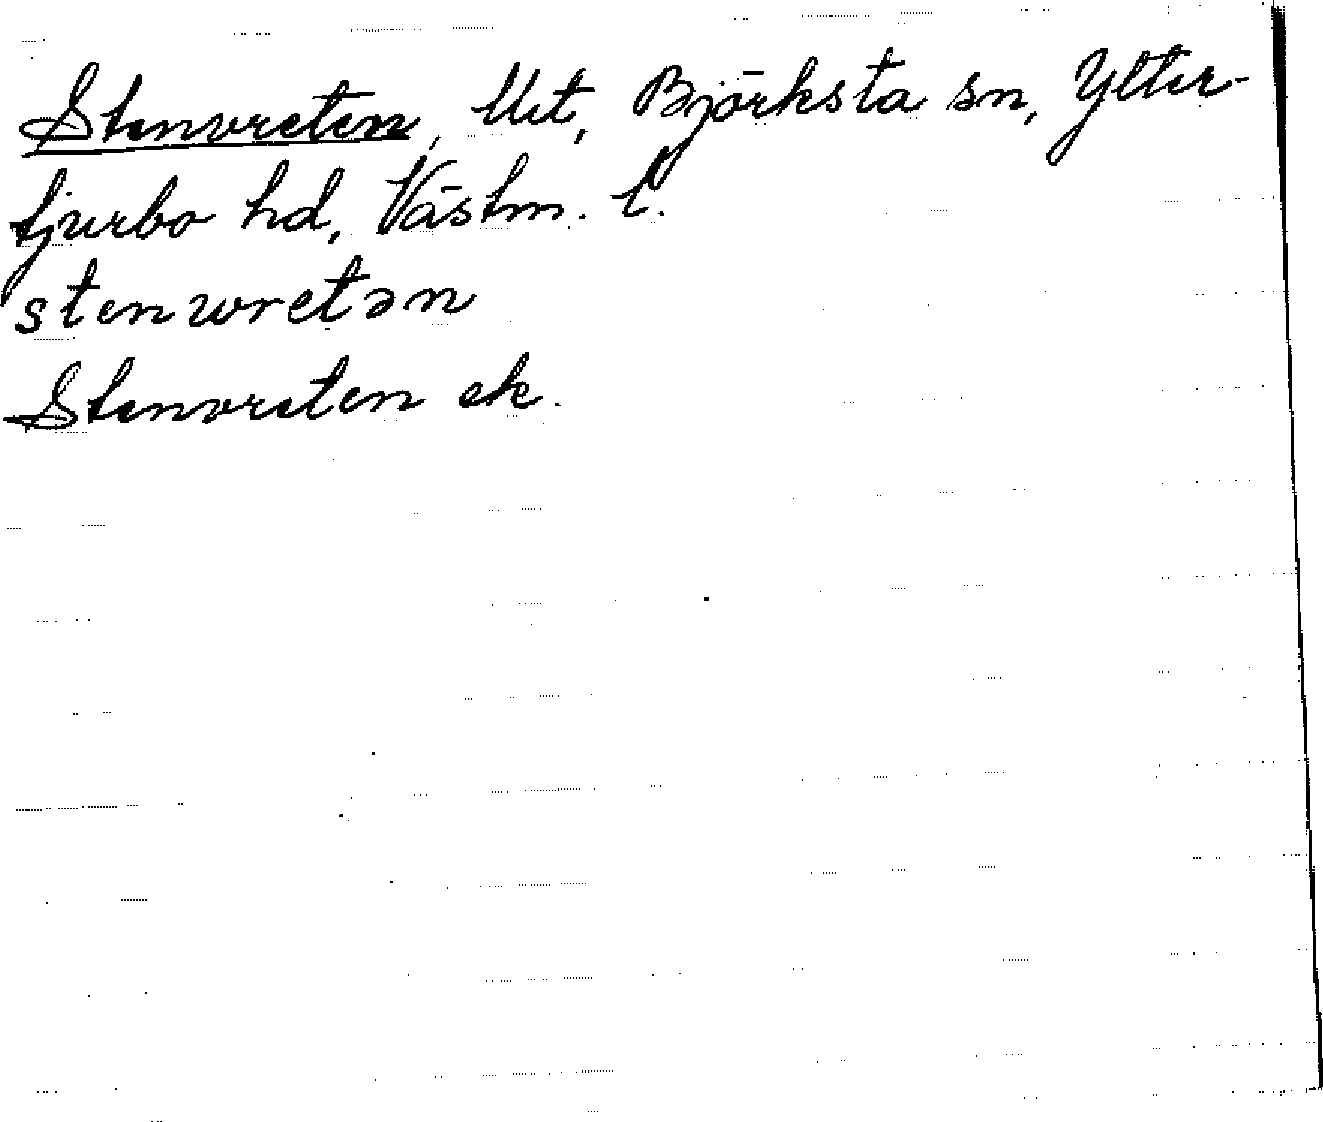 Stenvreten, Ut, Björksta sn, Ytter-
tjurbo hd, Västm. l.
stenvretən
Stenvreten ek.